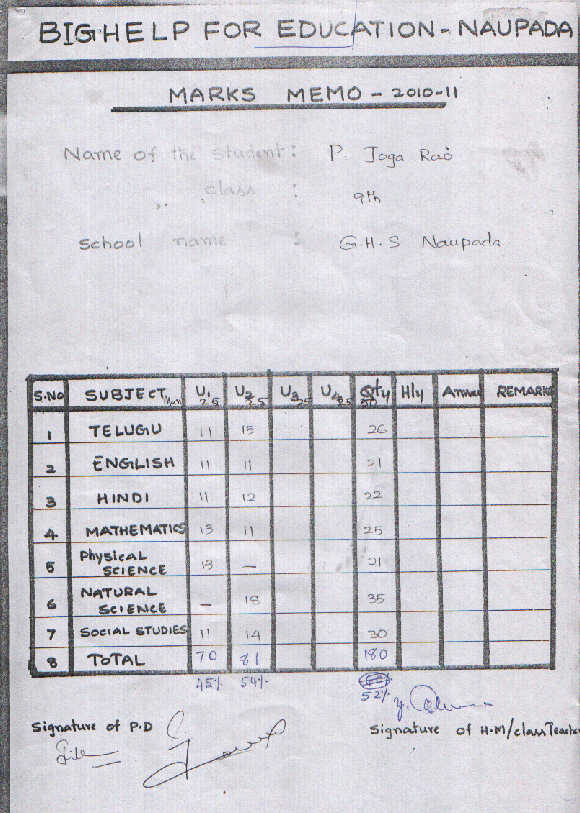 BIGHELP FOR EDUCATION - NAUPADA
MARKS MEMO - 2010-11
Name of the student : P. Joga Rao
class : 9th
School name : G.H.S Naupada
S.No SUBJECT U1 25 U2 25 U3 25 U4 25 Qty Hly Annual REMARKS
1 TELUGU 11 15 26
2 ENGLISH 11 11 21
3 HINDI 11 12 22
4 MATHEMATICS 13 11 25
5 Physical SCIENCE 13 — 21
6 NATURAL SCIENCE — 18 35
7 SOCIAL STUDIES 11 14 30
8 TOTAL 70 81 180
45% 54% 52%
Signature of P.D
Signature of H.M/class Teacher